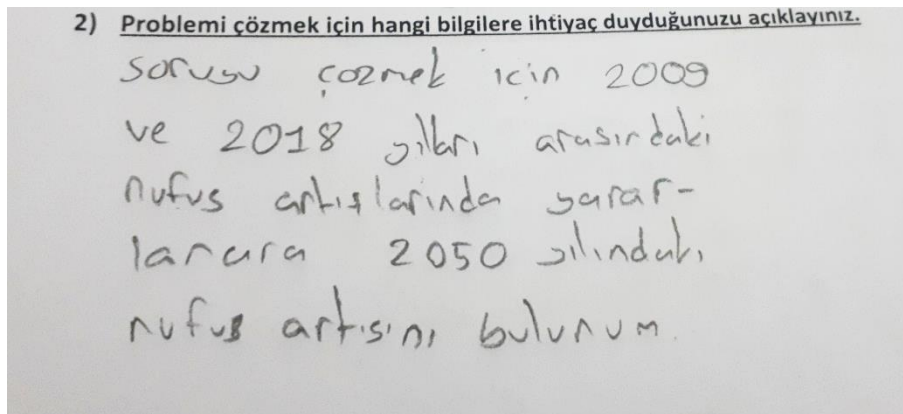 2) Problemi çözmek için hangi bilgilere ihtiyaç duyduğunuzu açıklayınız.
sorusu çozmek için 2009
ve 2018 yılları arasındaki
nufus artışlarında yarar-
lanara 2050 yılındaki
nufus artısını bulunum.